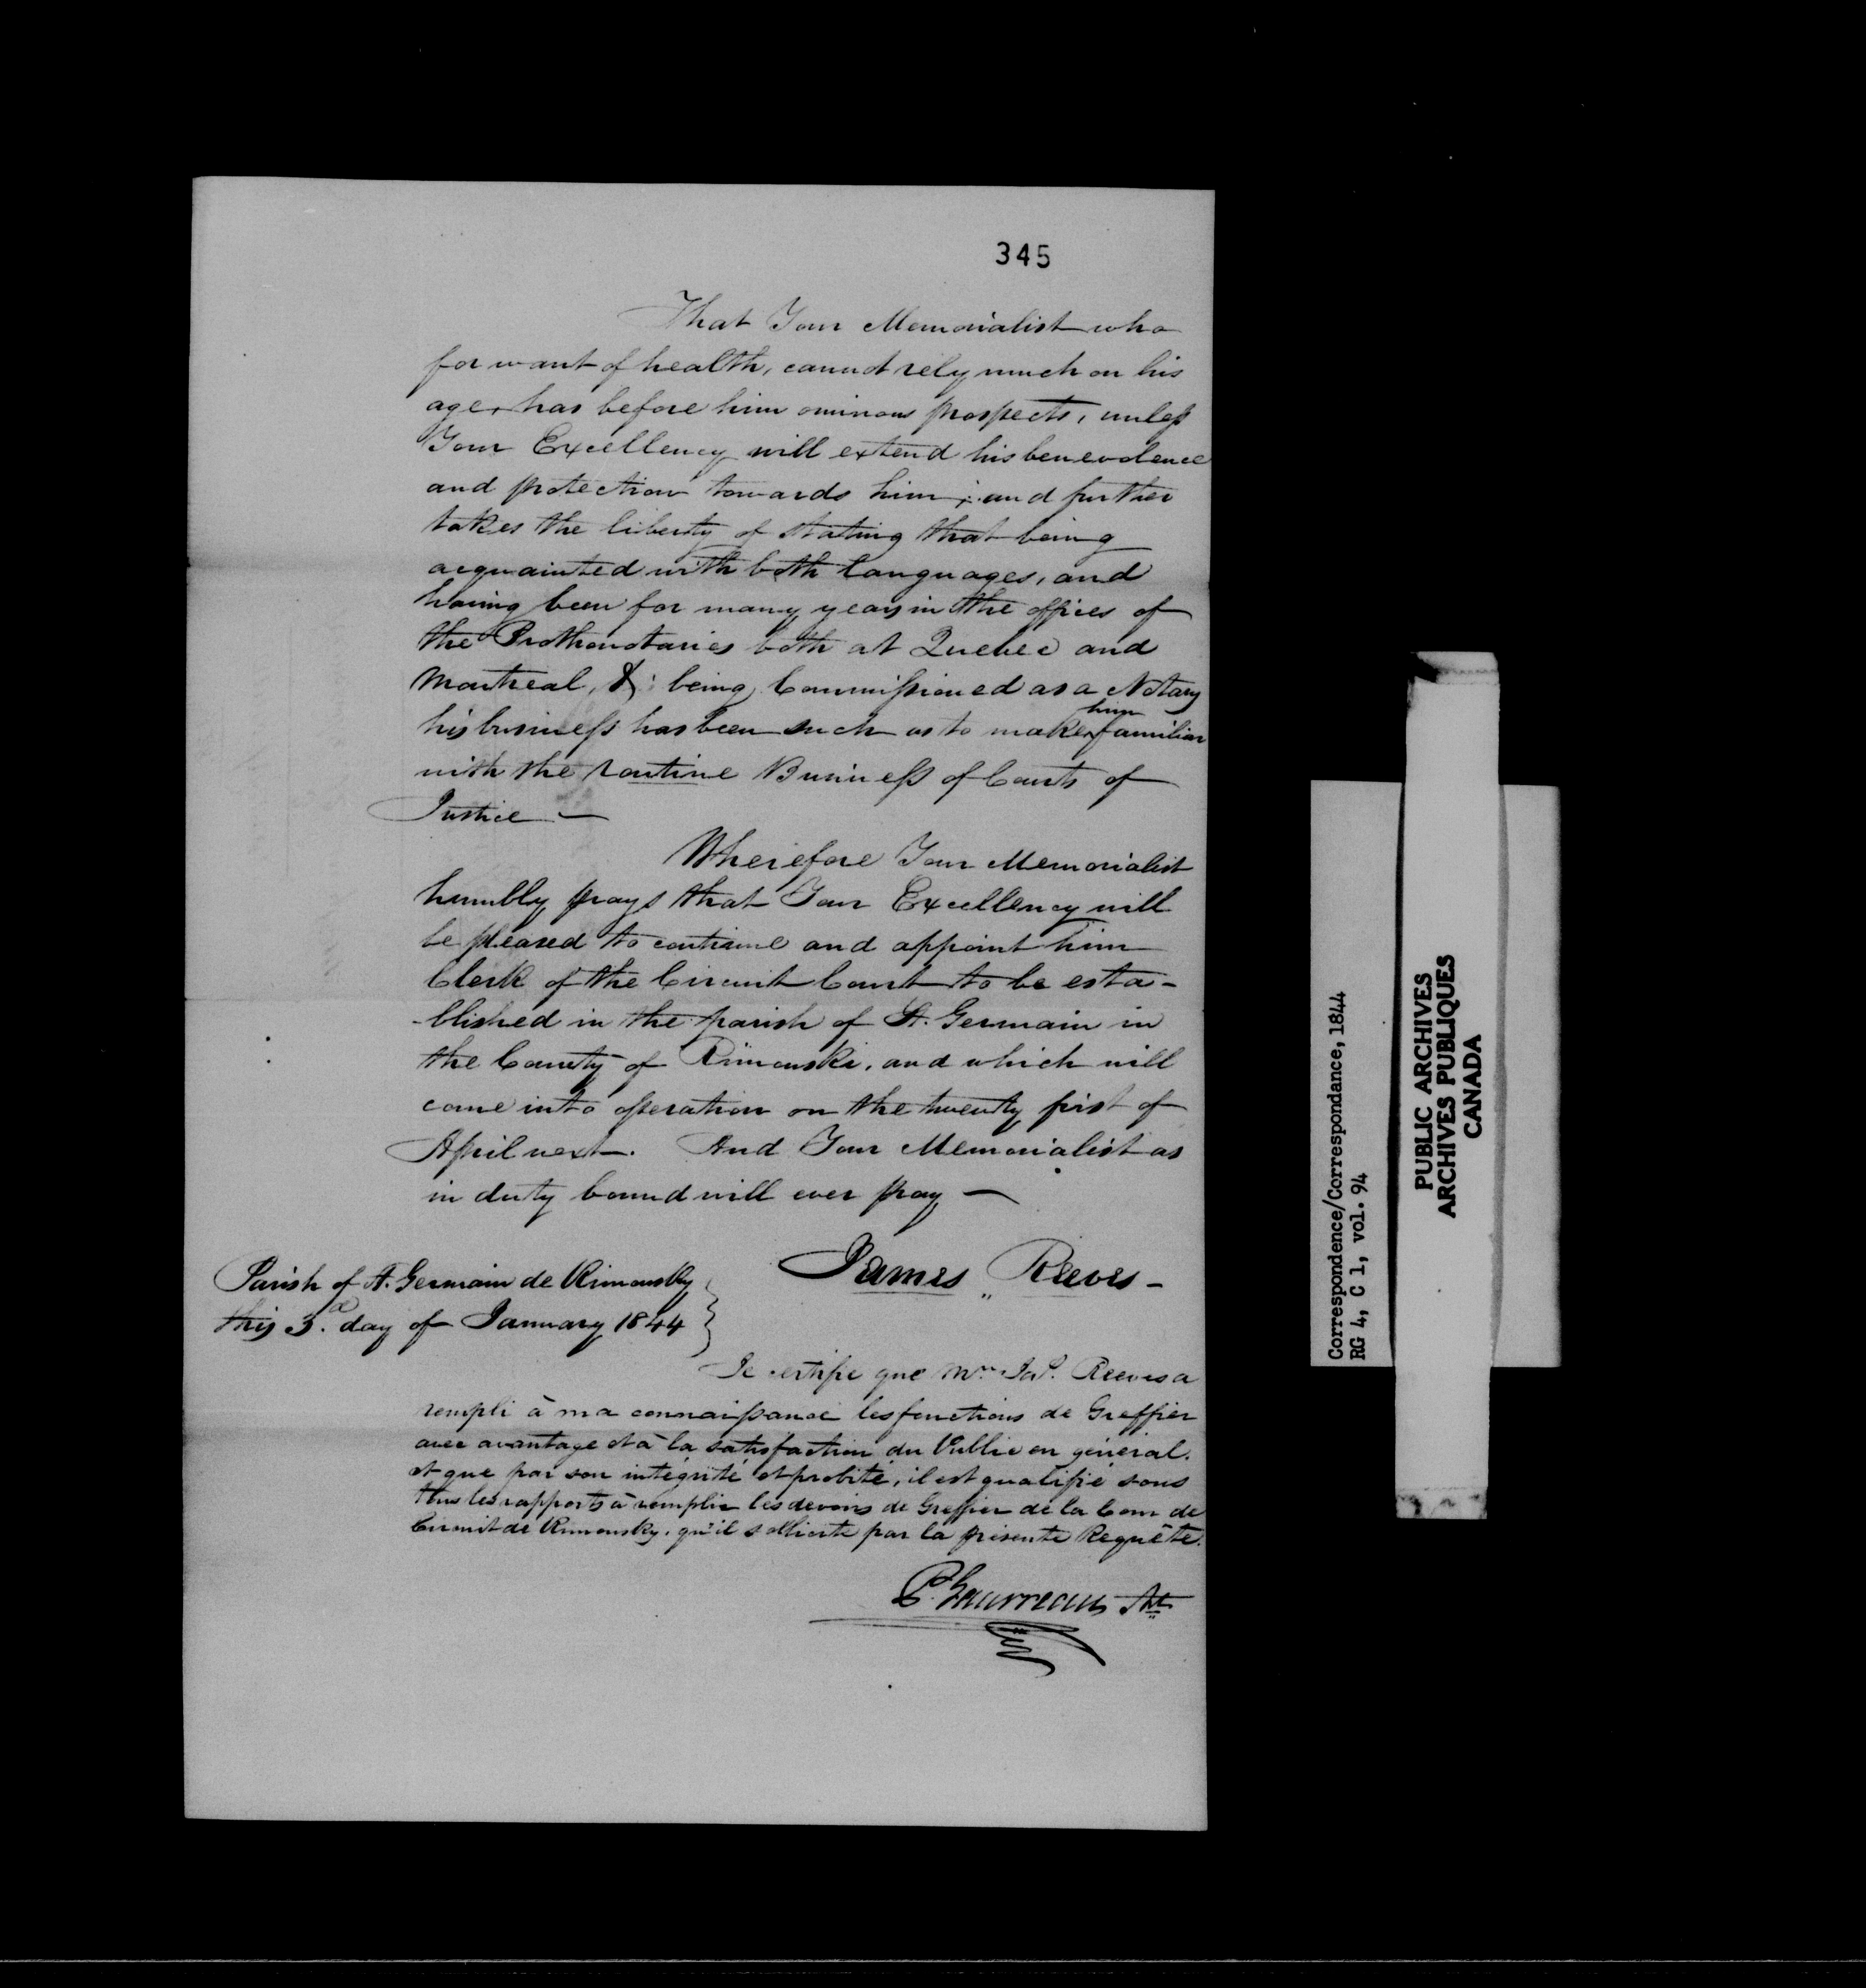 345
That Your Memorialist who
for want of health, cannot rely much on his
age, has before him ominous prospects, unless
Your Excellency will extend his benevolence
and protection towards him; and further
takes the liberty of stating that being
acquainted with both languages, and
having been for many years in the offices of
the Prothonotaries both at Quebec and
Montreal, & being Commissioned as a Notary
his business has been such as to make him familiar
with the routine Business of Courts of
Justice —
Wherefore Your Memorialist
humbly prays that Your Excellency will
be pleased to continue and appoint him
Clerk of the Circuit Court to be esta-
-blished in the parish of St. Germain in
the County of Rimouski, and which will
come into operation on the twenty first of
April next. And Your Memorialist as
in duty bound will ever pray —
James Reeves -
Parish of St. Germain de Rimousky
this 3.d day of January 1844
Je certifie que Mr. Jas. Reeves a
rempli à ma connaissance les fonctions de Greffier
avec avantage et à la satisfaction du Public en général.
et que par son intégrité et probité, il est qualifié sous
tous les rapports à remplir les devoirs de Greffier de la Cour de
Circuit de Rimousky, qu'il sollicite par la présente Requête.
P. Gauvreau
Correspondence/Correspondance, 1844
RG 4, C 1, vol. 94
PUBLIC ARCHIVES
ARCHIVES PUBLIQUES
CANADA